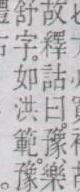 故釋詁曰豫樂
舒字如洪範豫